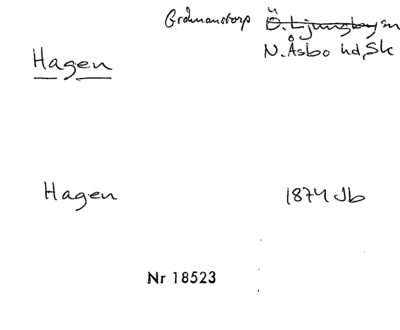 Erdmanstorp Ö. Ljungby sn
N. Åsbo hd, Sk
Hagen
Hagen 1874 Jb
Nr 18523